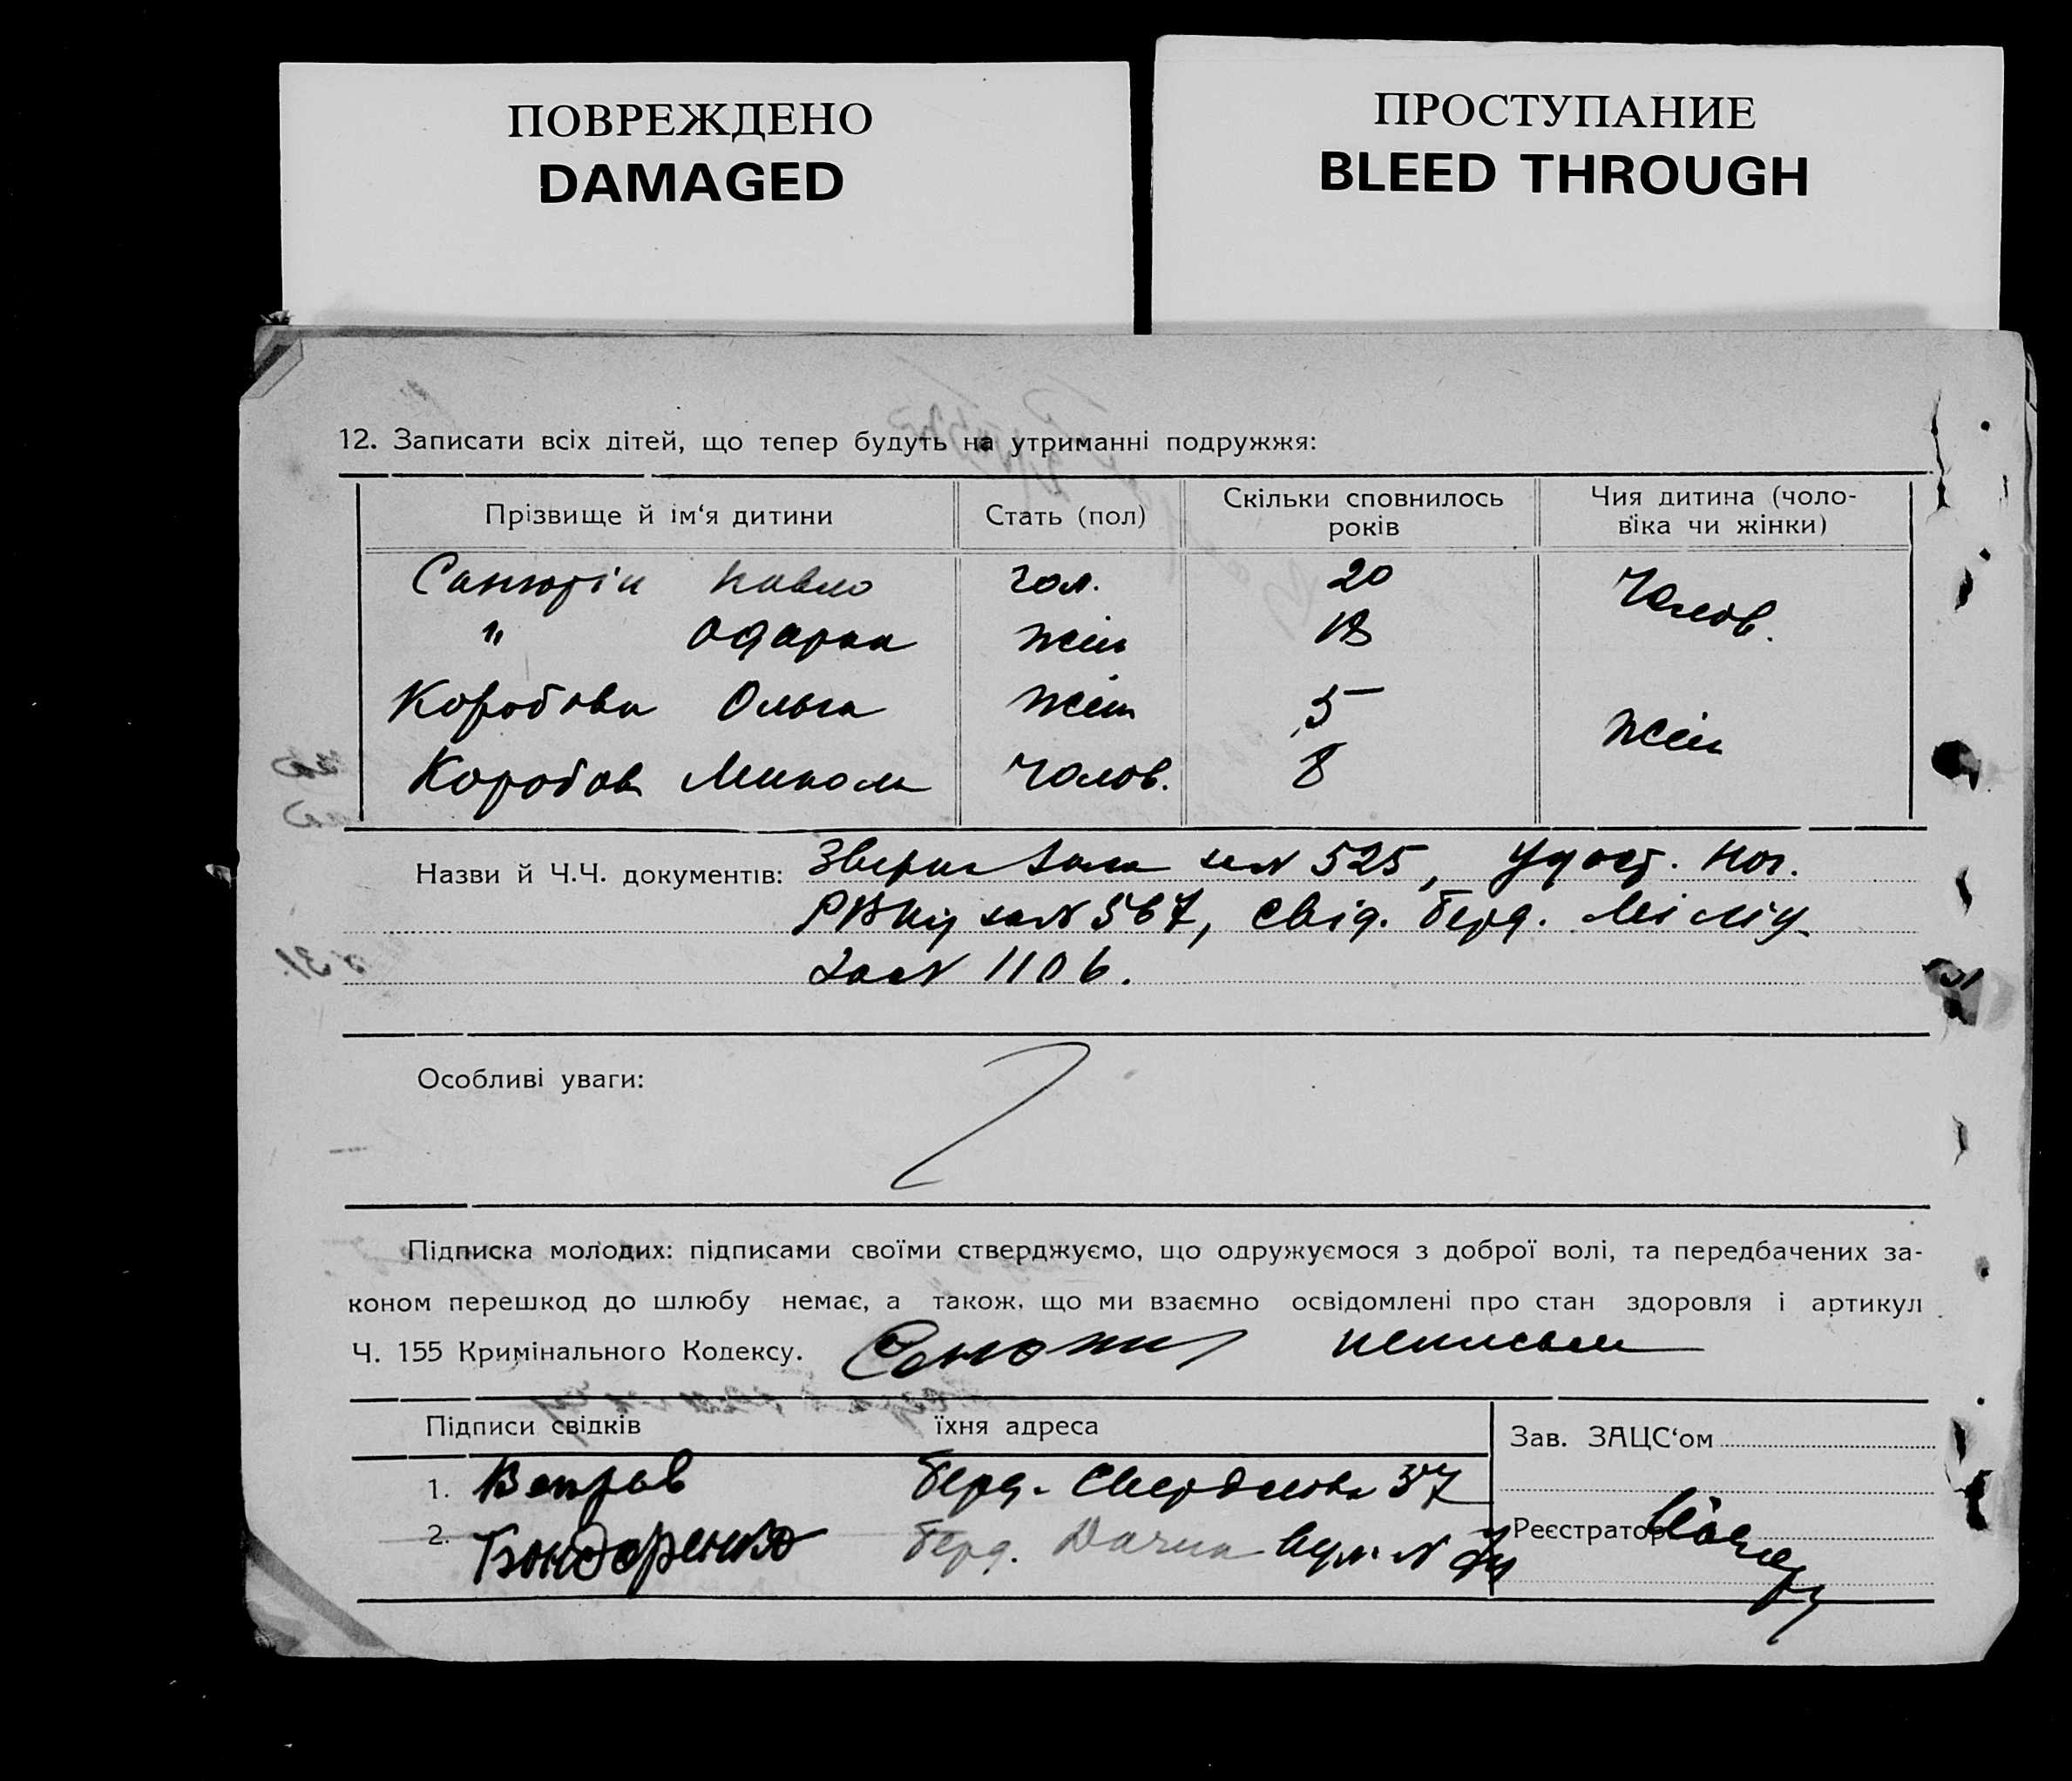 ПОВРЕЖДЕНО
DAMAGED
ПРОСТУПАНИЕ
BLEED THROUGH
12. Записати всіх дітей, що тепер будуть на утриманні подружжя:
Прізвище й ім‘я дитини
Стать (пол)
Скільки сповнилось
років
Чия дитина (чоло-
віка чи жінки)
Павло
чол.
20
Чолов.
"
Одарка
жін
18
Коробова Ольга
жін
5
жін
Коробов Микола
чолов.
8
Назви й Ч.Ч. документів:
за № 525, Удост. Ног.
за № 567, свід. Берд. Міліц
за № 1106.
Особливі уваги:
Підписка молодих: підписами своїми стверджуємо, що одружуємося з доброї волі, та передбачених за-
коном перешкод до шлюбу немає, а також, що ми взаємно освідомлені про стан здоровля і артикул
Ч. 155 Кримінального Кодексу.
Підписи свідків
їхня адреса
Зав. ЗАЦС‘ом
1.
Берд. Свердлова 37
2. Бондаренко
Берд. Дачна вул. №
Реєстратор